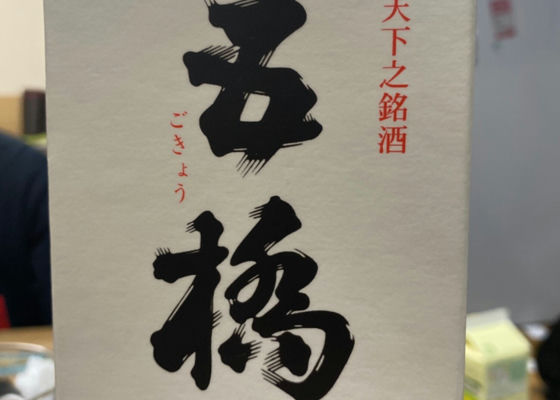 天下之銘酒
五橋
ごきょう